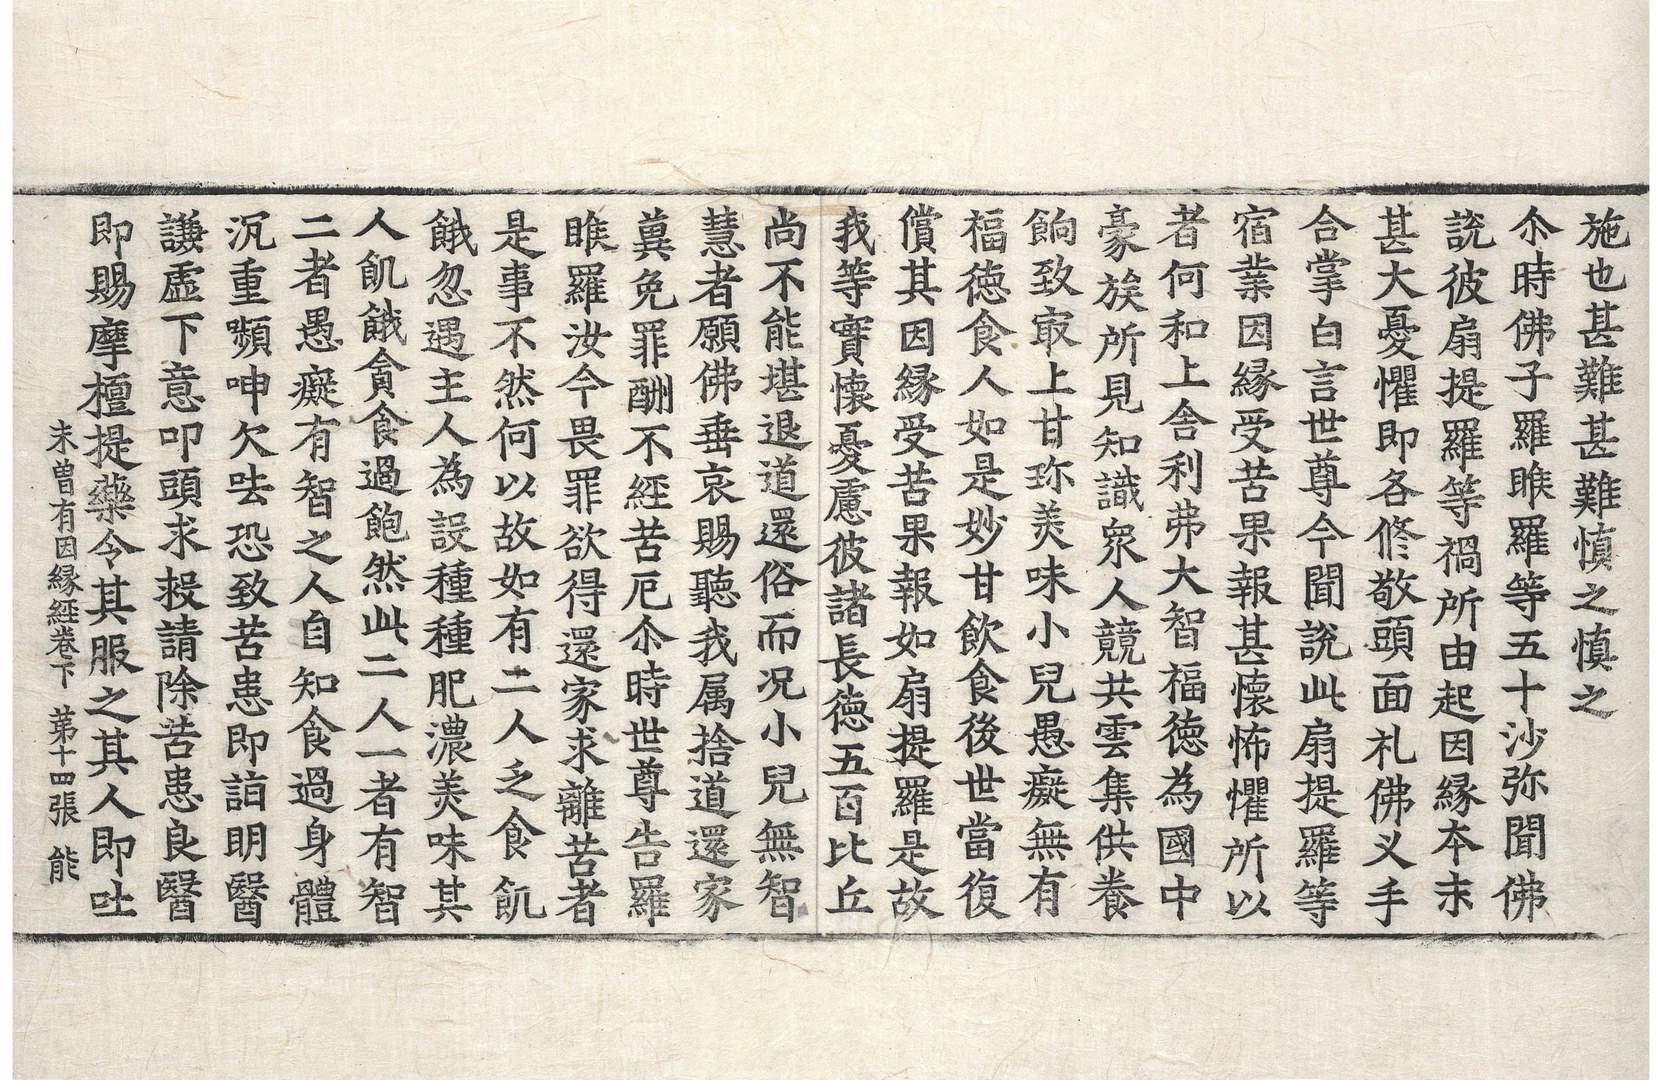 施也甚難甚難慎之慎之
尒時佛子羅睺羅等五十沙弥聞佛
說彼扇提羅等禍所由起因緣本末
甚大憂懼即各修敬頭面礼佛叉手
合掌白言世尊今聞說此扇提羅等
宿業因緣受苦果報甚懷怖懼所以
者何和上舍利弗大智福德為國中
豪族所見知識衆人競共雲集供養
餉致㝡上甘珎美味小兒愚癡無有
福德食人如是妙甘飲食後世當復
償其因緣受苦果報如扇提羅是故
我等實懷憂慮彼諸長德五百比丘
尚不能堪退道還俗而况小兒無智
慧者願佛垂哀賜聽我属捨道還家
兾免罪酬不經苦厄尒時世尊告羅
睺羅汝今畏罪欲得還家求離苦者
是事不然何以故如有二人乏食飢
餓忽遇主人為設種種肥濃美味其
人飢餓貪食過飽然此二人一者有智
二者愚癡有智之人自知食過身體
沉重嚬呻欠呿恐致苦患即詣明醫
謙虛下意叩頭求投請除苦患良醫
即賜摩檀提藥令其服之其人即吐
未曾有因緣經卷下 第十四張 能